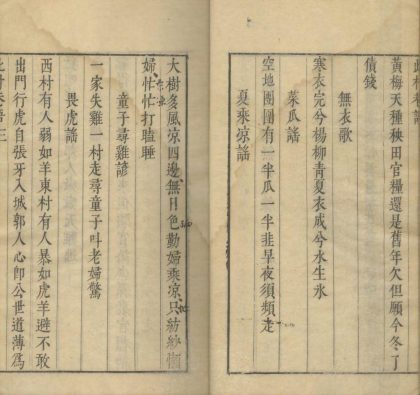 黃梅天種秧田官糧還是舊年欠但願今冬了
債錢
無衣歌
寒衣完兮楊柳青夏衣成兮水生氷
菜瓜謠
空地團團有一半瓜一半韭早夜須頻走
夏乘凉謠
大樹多風凉四邊無日色勤婦乘凉只紡紗懶
婦忙忙打瞌睡
童子尋雞諺
一家失雞一村走尋童子叫老婦驚
畏虎謠
西村有人弱如羊東村有人暴如虎羊避不敢
出門行虎自張牙入城郭人心卽公世道薄爲